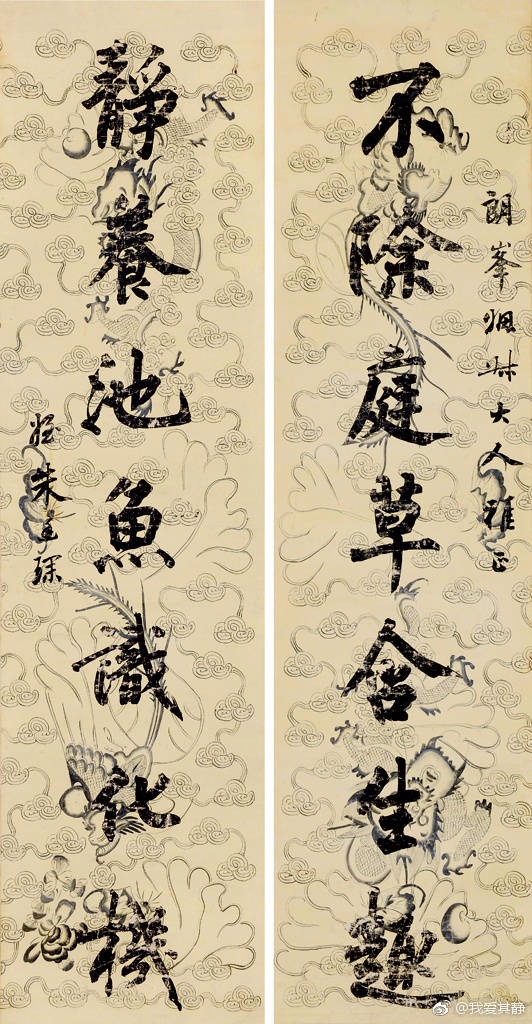 朗峯姻叔大人雅正
不除庭草含生趣
靜養池魚識化機
姪朱琛
@我爱其静